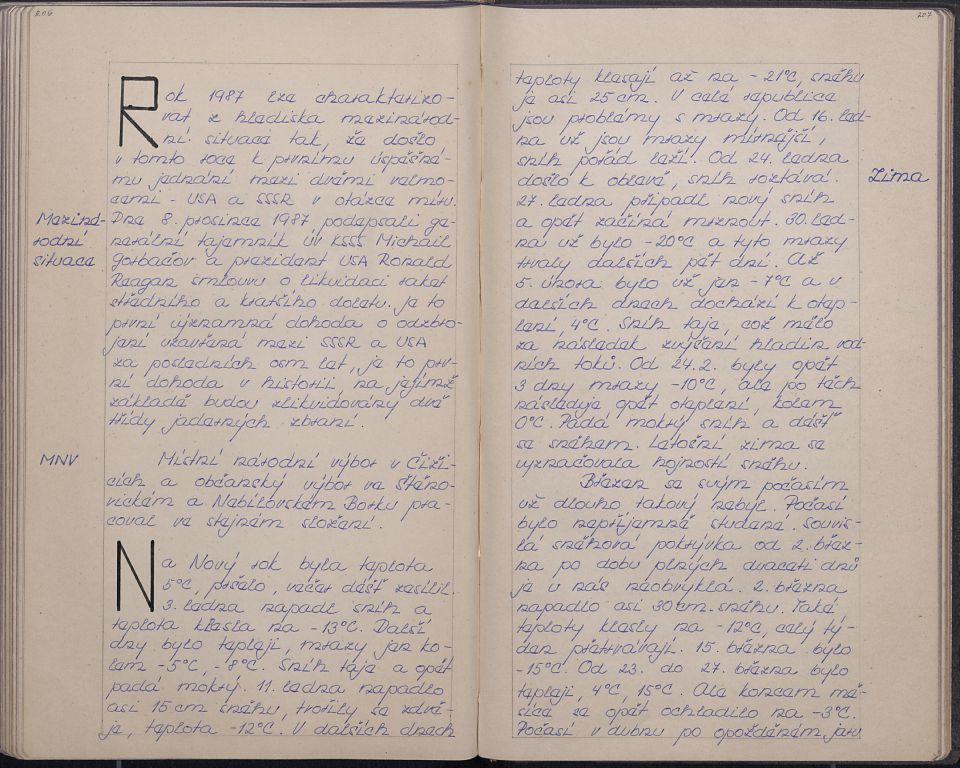 206
Rok 1987 lze charakterizo-
vat z hlediska mezinárod-
ní situace tak, že došlo
v tomto roce k prvnímu úspěšné-
mu jednání mezi dvěmi velmo-
cemi - USA a SSSR v otázce míru.
Meziná-
rodní
situace
Dne 8. prosince 1987 podepsali ge-
nerální tajemník ÚV KSSS Michail
Gorbačov a prezident USA Ronald
Reagan smlouvu o likvidaci raket
středního a kratšího doletu. Je to
první významná dohoda o odzbro-
jení uzavřená mezi SSSR a USA
za posledních osm let, je to prv-
ní dohoda v historii, na jejímž
základě budou zlikvidovány dvě
třídy jaderných zbraní.
MNV
Místní národní výbor v Čiži-
cích a občanský výbor ve Štěno-
vickém a Nebílovském Borku pra-
coval ve stejném složení.
Na Nový rok byla teplota
5°C, pršelo, večer déšť zesílil.
3. ledna napadl sníh a
teplota klesla na -13°C. Další
dny bylo tepleji, mrazy jen ko-
lem -5°C, -8°C. Sníh taje a opět
padá mokrý. 11. ledna napadlo
asi 15 cm sněhu, trošily se závě-
je, teplota -12°C. V dalších dnech
207
teploty klesají až na -21°C, sněhu
je asi 25 cm. V celé republice
jsou problémy s mrazy. Od 16. led-
na už jsou mrazy mírnější,
sníh pořád leží. Od 24. ledna
došlo k oblevě, sníh roztává.
Zima
27. ledna připadl nový sníh
a opět začíná mrznout. 30. led-
na už bylo -20°C a tyto mrazy
trvaly dalších pět dní. Až
5. února bylo už jen -7°C a v
dalších dnech dochází k otep-
lení, 4°C. Sníh taje, což mělo
za následek zvýšení hladin vod-
ních toků. Od 24.2. byly opět
3 dny mrazy -10°C, ale po těch
následuje opět oteplení, kolem
0°C. Padá mokrý sníh a déšť
se sněhem. Letošní zima se
vyznačovala hojností sněhu.
Březen se svým počasím
už dlouho takový nebyl. Počasí
bylo nepříjemně studené. Souvis-
lá sněhová pokrývka od 2. břez-
na po dobu plných dvaceti dnů
je u nás neobvyklá. 2. března
napadlo asi 30 cm. sněhu. Také
teploty klesly na -12°C, celý tý-
den přetrvávají. 15. března bylo
-15°C. Od 23. do 27. března bylo
tepleji, 4°C, 15°C. Ale koncem mě-
síce se opět ochladilo na -3°C.
Počasí v dubnu po opožděném jaru